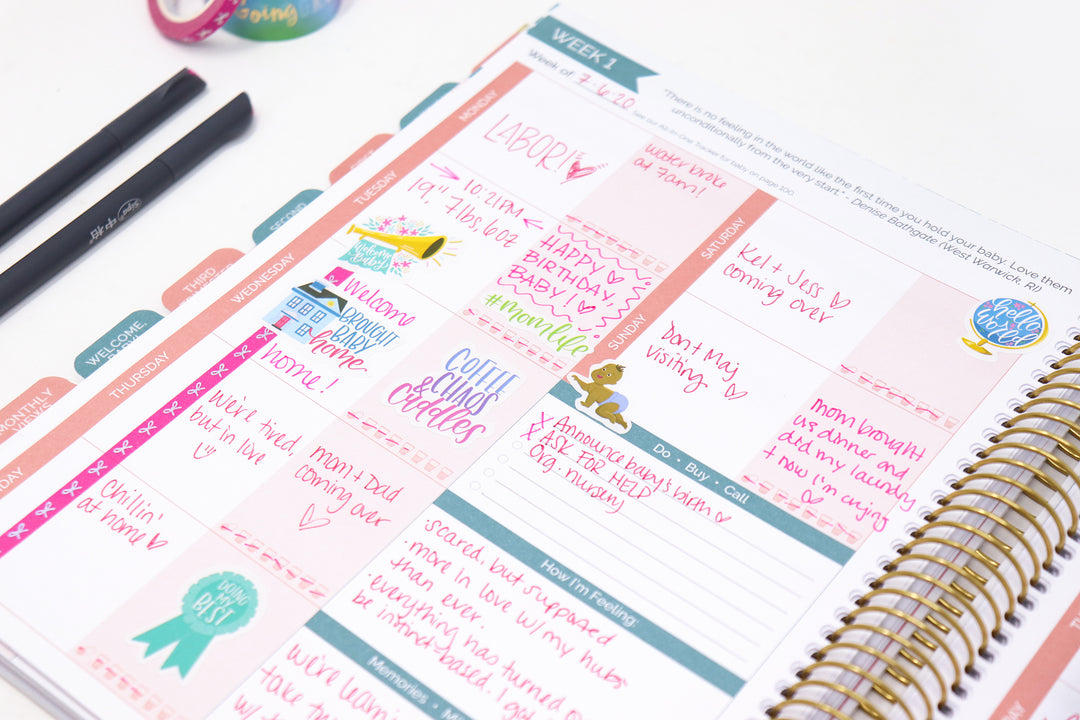 Going
WEEK 1
Week of 7·6·20
See our All-In-One Tracker for baby on page 100.
"There is no feeling in the world like the first time you hold your baby. Love them
unconditionally from the very start." - Denise Bathgate (West Warwick, RI)
SECOND
THIRD
WELCOME
MONTHLY
VIEWS
MONDAY
LABOR!
water broke
at 7am!
TUESDAY
10:21PM
19", 7lbs, 6oz
Welcome
Baby
HAPPY
BIRTHDAY,
BABY!
#momlife
WEDNESDAY
Welcome
BROUGHT
BABY
home
home!
COFFEE
CHAOS
& Cuddles
THURSDAY
We're tired,
but in love
mom + Dad
coming over
DAY
Chillin'
at home
DOING
MY
BEST
SATURDAY
Kel + Jess
coming over
hello
World
SUNDAY
Don + Maj
visiting
mom brought
us dinner and
did my laundry
+ now I'm crying
Do • Buy • Call
X Announce baby's birth
X ASK FOR HELP
Org. nursery
How I'm Feeling:
·scared, but supported
·more in love w/ my hubs
than ever.
·everything has turned
be instinct-based. I
Memories •
We're
take
w/